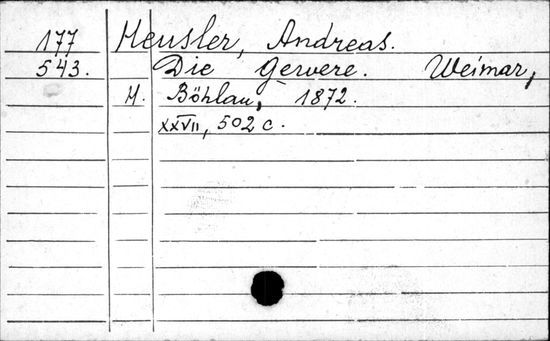 177 Heusler, Andreas.
543. Die Gewere. Weimar,
H. Böhlau, 1872.
XXVII, 502 c.